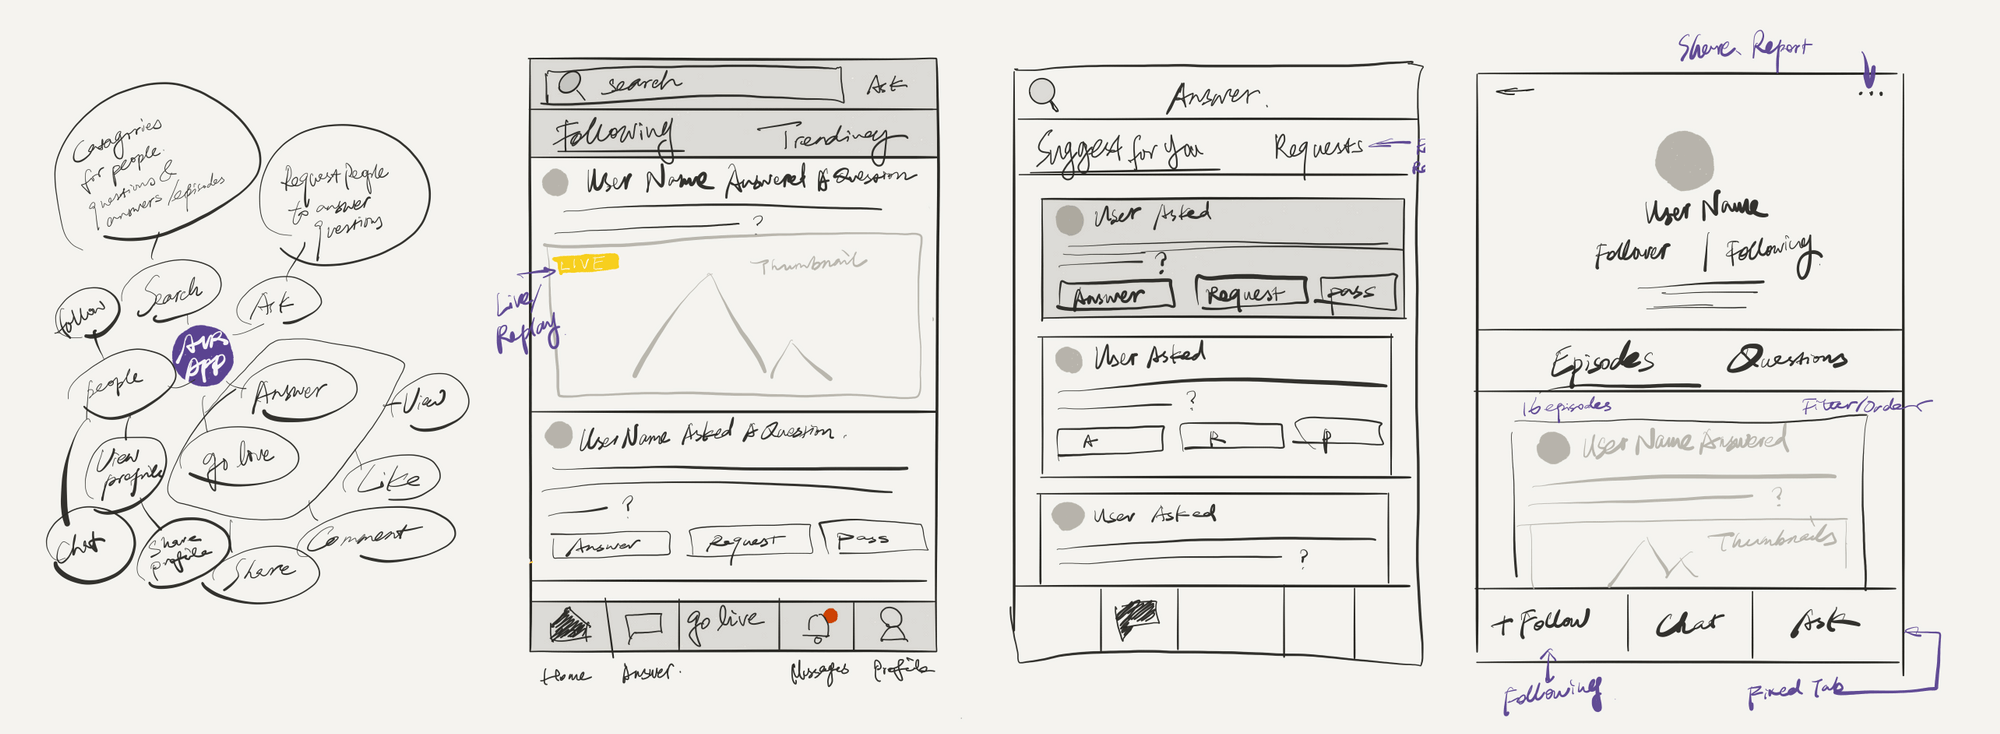 Catagories
for people.
questions &
answers/episodes
Request people
to answer
questions
Search
Ask
follow
AVR
APP
people
Answer
+View
View
profile
go live
Like
Chat
Share
profile
Share
Comment
search
Ask
Following
Trending
User Name Answered A Question
?
LIVE
Thumbnail
Live/
Replay
User Name Asked A Question.
?
Answer
Request
pass
go live
Home
Answer.
Messages
Profile
Answer.
Suggest for You
Requests
User Asked
?
Answer
Request
pass
User Asked
?
A
R
P
User Asked
?
Share Report
...
User Name
Follower | Following
Episodes
Questions
16 episodes
Filter/Order
User Name Answered
?
Thumbnails
+ Follow
Chat
Ask
Following
Fixed Tab